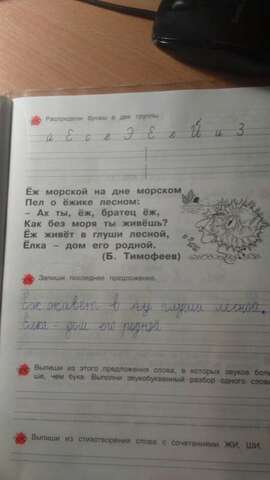 Распредели буквы в две группы.
Ёж морской на дне морском
Пел о ёжике лесном:
– Ах ты, ёж, братец ёж,
Как без моря ты живёшь?
Ёж живёт в глуши лесной,
Ёлка – дом его родной.
(Б. Тимофеев)
Запиши последнее предложение.
Ёж живёт в глуши лесной,
Ёлка - дом его родной
Выпиши из этого предложения слова, в которых звуков боль
ше, чем букв. Выполни звукобуквенный разбор одного слова
Выпиши из стихотворения слова с сочетаниями ЖИ, ШИ.